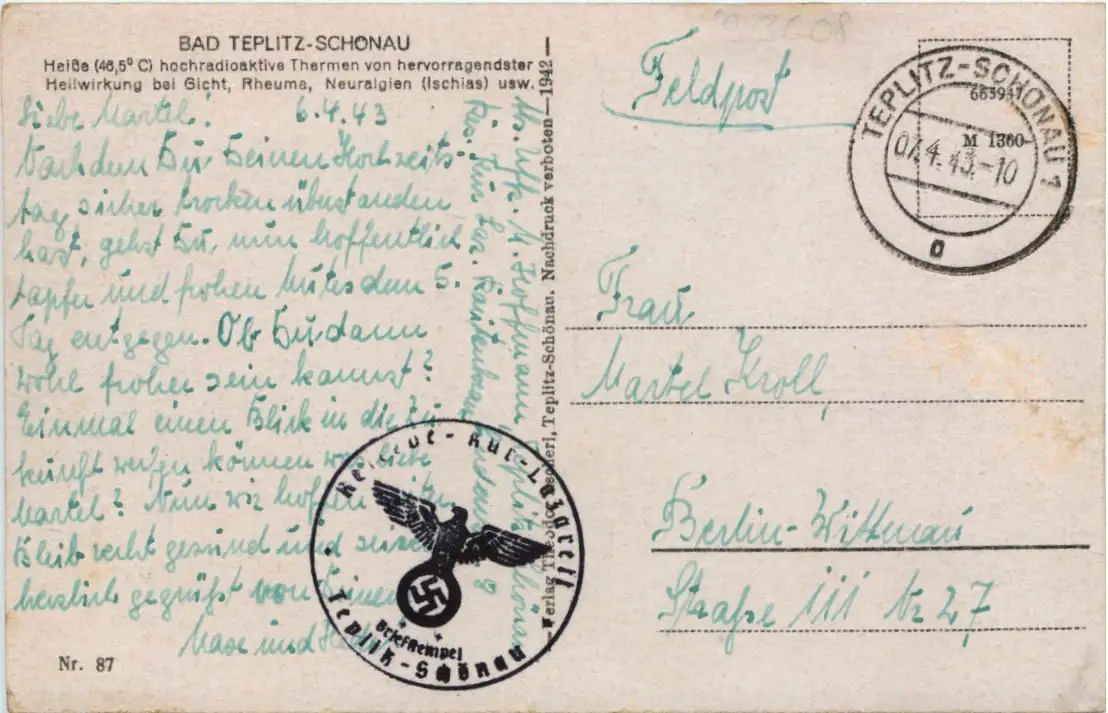 BAD TEPLITZ-SCHÖNAU
Heiße (46,5° C) hochradioaktive Thermen von hervorragendster
Heilwirkung bei Gicht, Rheuma, Neuralgien (Ischias) usw.
Liebe Martel! 6.4.43
Nachdem Du Deinen Hochzeits-
tag sicher trocken überstanden
hast, gehst Du nun hoffentlich
tapfer und frohen Mutes dem 5.
Tag entgegen. Ob Du dann
wohl froher sein kannst?
Einmal einen Blick in die Zu
kunft werfen können was liebe
Martel? Nun wir hoffen
Bleib recht gesund und sei
herzlich gegrüßt von Deinen
und
Nr. 87
Abs. Uffz. M. Hoffmann, Teplitz-Schönau
Res. Kur Laz.
Verlag Theodor Teplitz-Schönau. Nachdruck verboten—1942—
Reserve-Kur-Lazarett
Briefstempel
Teplitz-Schönau
Feldpost
TEPLITZ-SCHÖNAU 1
07.4.43.-10
a
M 1360
Frau
Martel Kroll,
Berlin-Wittnau
Straße III Nr 27